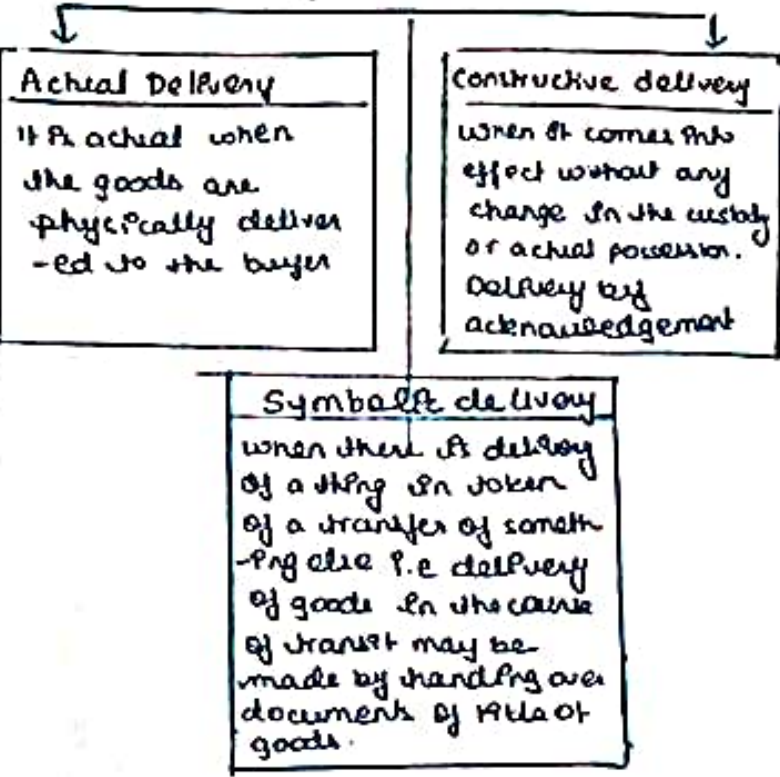 Actual Delivery
It is actual when
the goods are
physically deliver
-ed to the buyer
Constructive delivery
when it comes into
effect without any
change in the custody
or actual possession.
Delivery by
acknowledgement
Symbolic delivery
when there is delivery
of a thing in token
of a transfer of someth
-ing else i.e delivery
of goods in the course
of transit may be
made by handing over
documents of title of
goods.